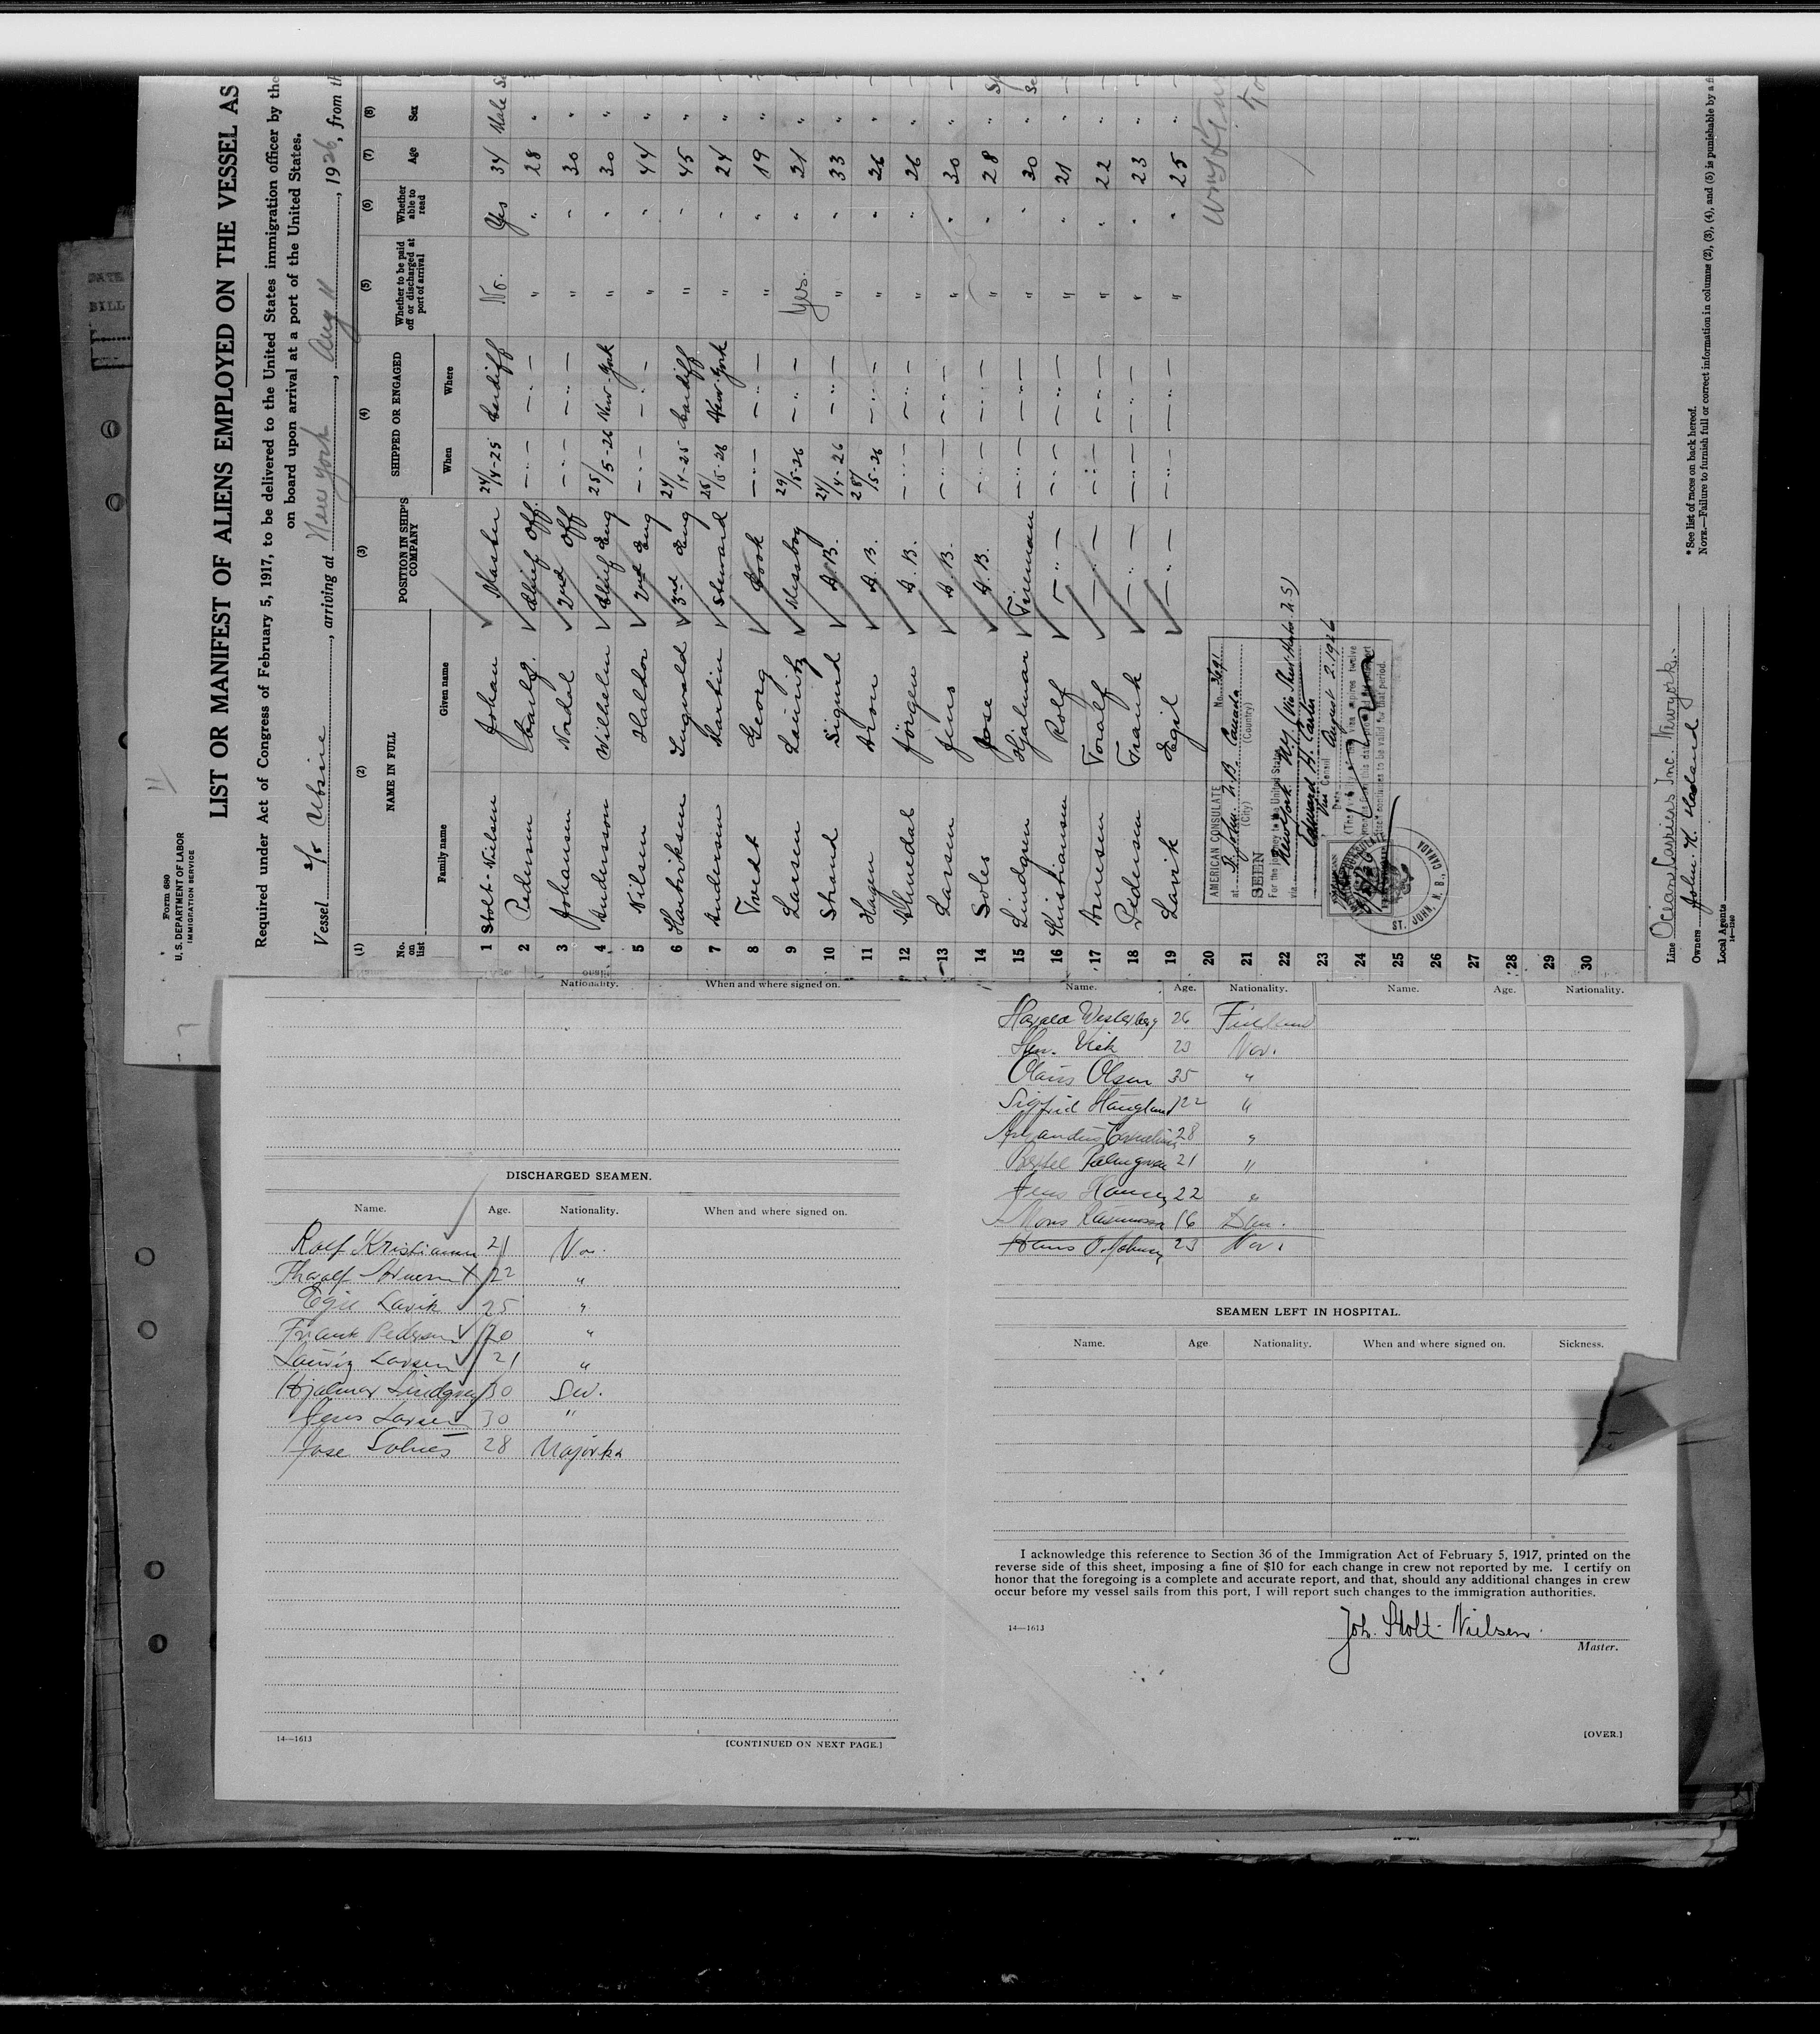 Form 680
U. S. DEPARTMENT OF LABOR
IMMIGRATION SERVICE
LIST OR MANIFEST OF ALIENS EMPLOYED ON THE VESSEL AS
Required under Act of Congress of February 5, 1917, to be delivered to the United States immigration officer by the
on board upon arrival at a port of the United States.
Vessel S/S Ubsine, arriving at New York, Aug 11, 1926, from th
(1) (2) (3) (4) (5) (6) (7) (8)
No. on list NAME IN FULL POSITION IN SHIP'S COMPANY SHIPPED OR ENGAGED Whether to be paid off or discharged at port of arrival Whether able to read Age Sex
Family name Given name When Where
1 Stolt-Nielsen Johan Master 24/4-25 Cardiff No. Yes 34 Male
2 Pedersen Chief Off. — " — — " — " " 28 "
3 Johansen Nordal 2nd Off — " — — " — " " 30 "
4 Andersson Wilhelm Chief Eng 25/5-26 New-York " " 30 "
5 Nilsen Haldor 2nd Eng — " — — " — " " 44 "
6 Hanbriksen Lingvald 3rd Eng 24/4-25 Cardiff " " 45 "
7 Anderson Martin Steward 25/5-26 New-York " " 24 "
8 Tvedt Georg Cook — " — — " — " " 19 "
9 Larsen Lauritz Messboy 29/5-26 — " — Yes. " 21 "
10 Strand Sigurd A.B. 24/4-26 — " — " " 33 "
11 Hagen Aron A.B. 28/5-26 — " — " " 26 "
12 Almedal Jörgen A.B. — " — — " — " " 26 "
13 Larsen Jens A.B. — " — — " — " " 30 "
14 Soles Jose A.B. — " — — " — " " 28 "
15 Lindgren Hjalmar Fireman — " — — " — " " 30 "
16 Kristiansen Rolf — " — — " — — " — " " 21 "
17 Arnesen Toralf — " — — " — — " — " " 22 "
18 Pedersen Frank — " — — " — — " — " " 23 "
19 Lavik Egil — " — — " — — " — " " 25 "
20
21
22
23
24
25
26
27
28
29
30
AMERICAN CONSULATE No. 3691
at St. John, N.B. Canada
(City) (Country)
SEEN
For the journey to the United States
New York N.Y.
via
Edward A. Carter
Vice Consul August 2. 1926
Date
ST. JOHN, N. B., CANADA
Line Ocean Carriers Inc. Newyork.
Owners John K. Hasland
Local Agents
14—1240
* See list of races on back hereof.
NOTE.—Failure to furnish full or correct information in columns (2), (3), (4), and (5) is punishable by a f
DATE
BILL
Nationality. When and where signed on.
DISCHARGED SEAMEN.
Name. Age. Nationality. When and where signed on.
Rolf Kristiansen 21 Nor.
Thoralf Arnesen 22 "
Egil Lavik 25 "
Frank Pedersen 20 "
Lauritz Larsen 21 "
Hjalmar Lindgren 30 Sw.
Jens Larsen 30 "
Jose Solnes 28 Majorka
14—1613
[CONTINUED ON NEXT PAGE.]
Name. Age. Nationality. Name. Age. Nationality.
Harald Westerberg 26 Finland
Vick 23 Nor.
Olaus Olsen 35 "
Sigfrid Haugland 22 "
28 "
Palmgren 21 "
Jens Hansen 22 "
Mons Rasmussen 16 Dan.
Hans O. Johnsen 23 Nor.
SEAMEN LEFT IN HOSPITAL.
Name. Age Nationality. When and where signed on. Sickness.
I acknowledge this reference to Section 36 of the Immigration Act of February 5, 1917, printed on the
reverse side of this sheet, imposing a fine of $10 for each change in crew not reported by me. I certify on
honor that the foregoing is a complete and accurate report, and that, should any additional changes in crew
occur before my vessel sails from this port, I will report such changes to the immigration authorities.
14—1613
Joh. Stolt-Nielsen.
Master.
[OVER.]